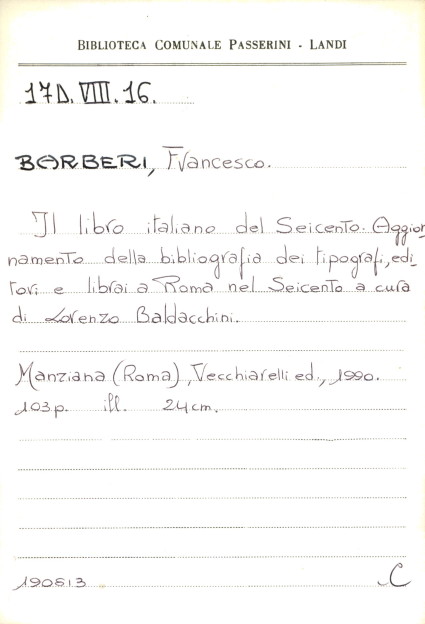 BIBLIOTECA COMUNALE PASSERINI - LANDI
17D.VIII.16.
BARBERI, Francesco.
Il libro italiano del Seicento. Aggior
namento della bibliografia dei tipografi, edi_
tori e librai a Roma nel Seicento a cura
di Lorenzo Baldacchini.
Manziana (Roma), Vecchiarelli ed., 1990.
103p. ill. 24cm.
190513 C